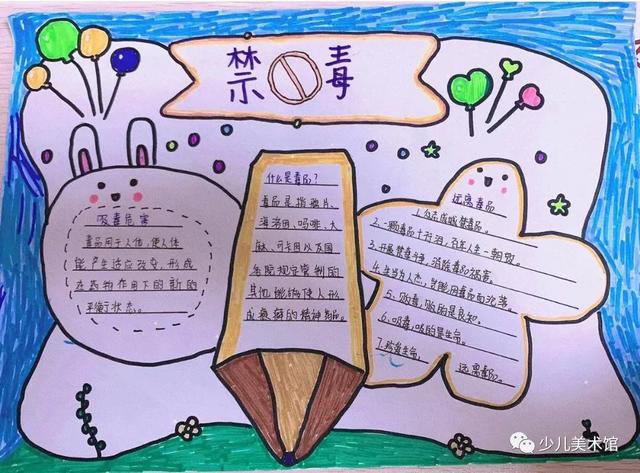 禁毒
吸毒危害
毒品用于人体,使人体
能产生适应改变,形成
在药物作用下的新的
平衡状态。
什么是毒品?
毒品是指鸦片、
海洛因、吗啡、大
麻、可卡因以及国
务院规定管制的
其他能够使人形
成瘾癖的精神药品。
远离毒品
1.众志成城禁毒品。
2.一颗毒品十行泪,百年人生一朝毁。
3.开展禁毒斗争,消除毒品祸害。
4.生当为人杰,岂能因毒品而沦落。
5.贩毒,贩的是良知。
6.吸毒,吸的是生命。
7.珍爱生命,
远离毒品。
少儿美术馆